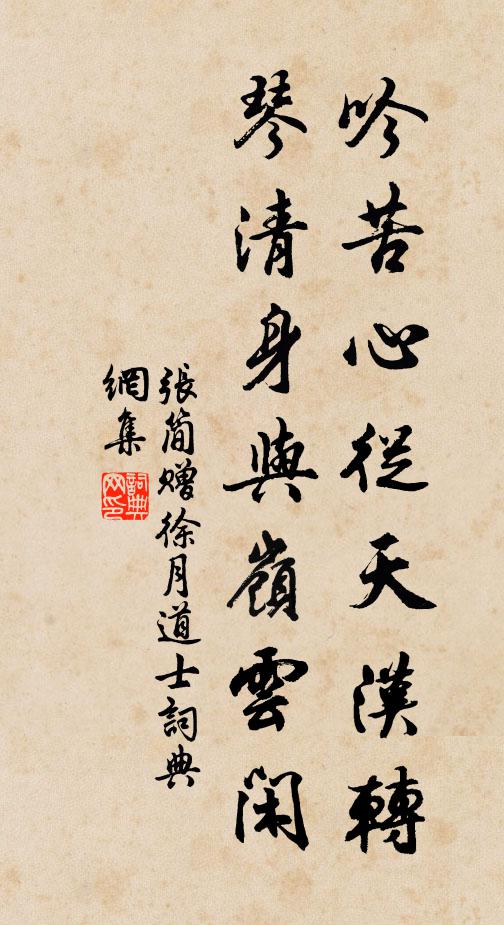 吟苦心從天漢轉
琴清身與嶺雲閑
張簡贈徐月道士詞典
網集
詞典
网印